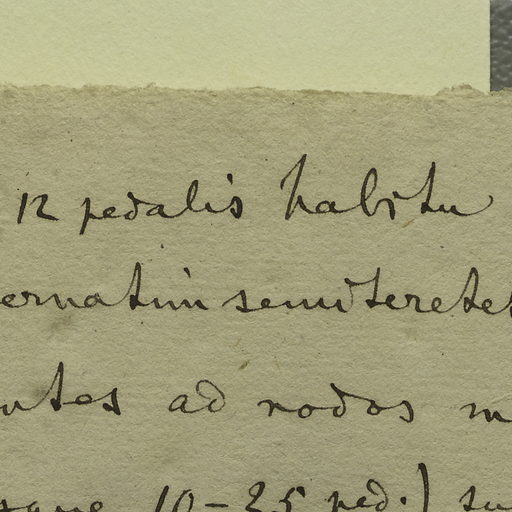 12 pedalis habitu
ernatim semiteretes
ntes ad nodos m
sque 10-25 ped.) su